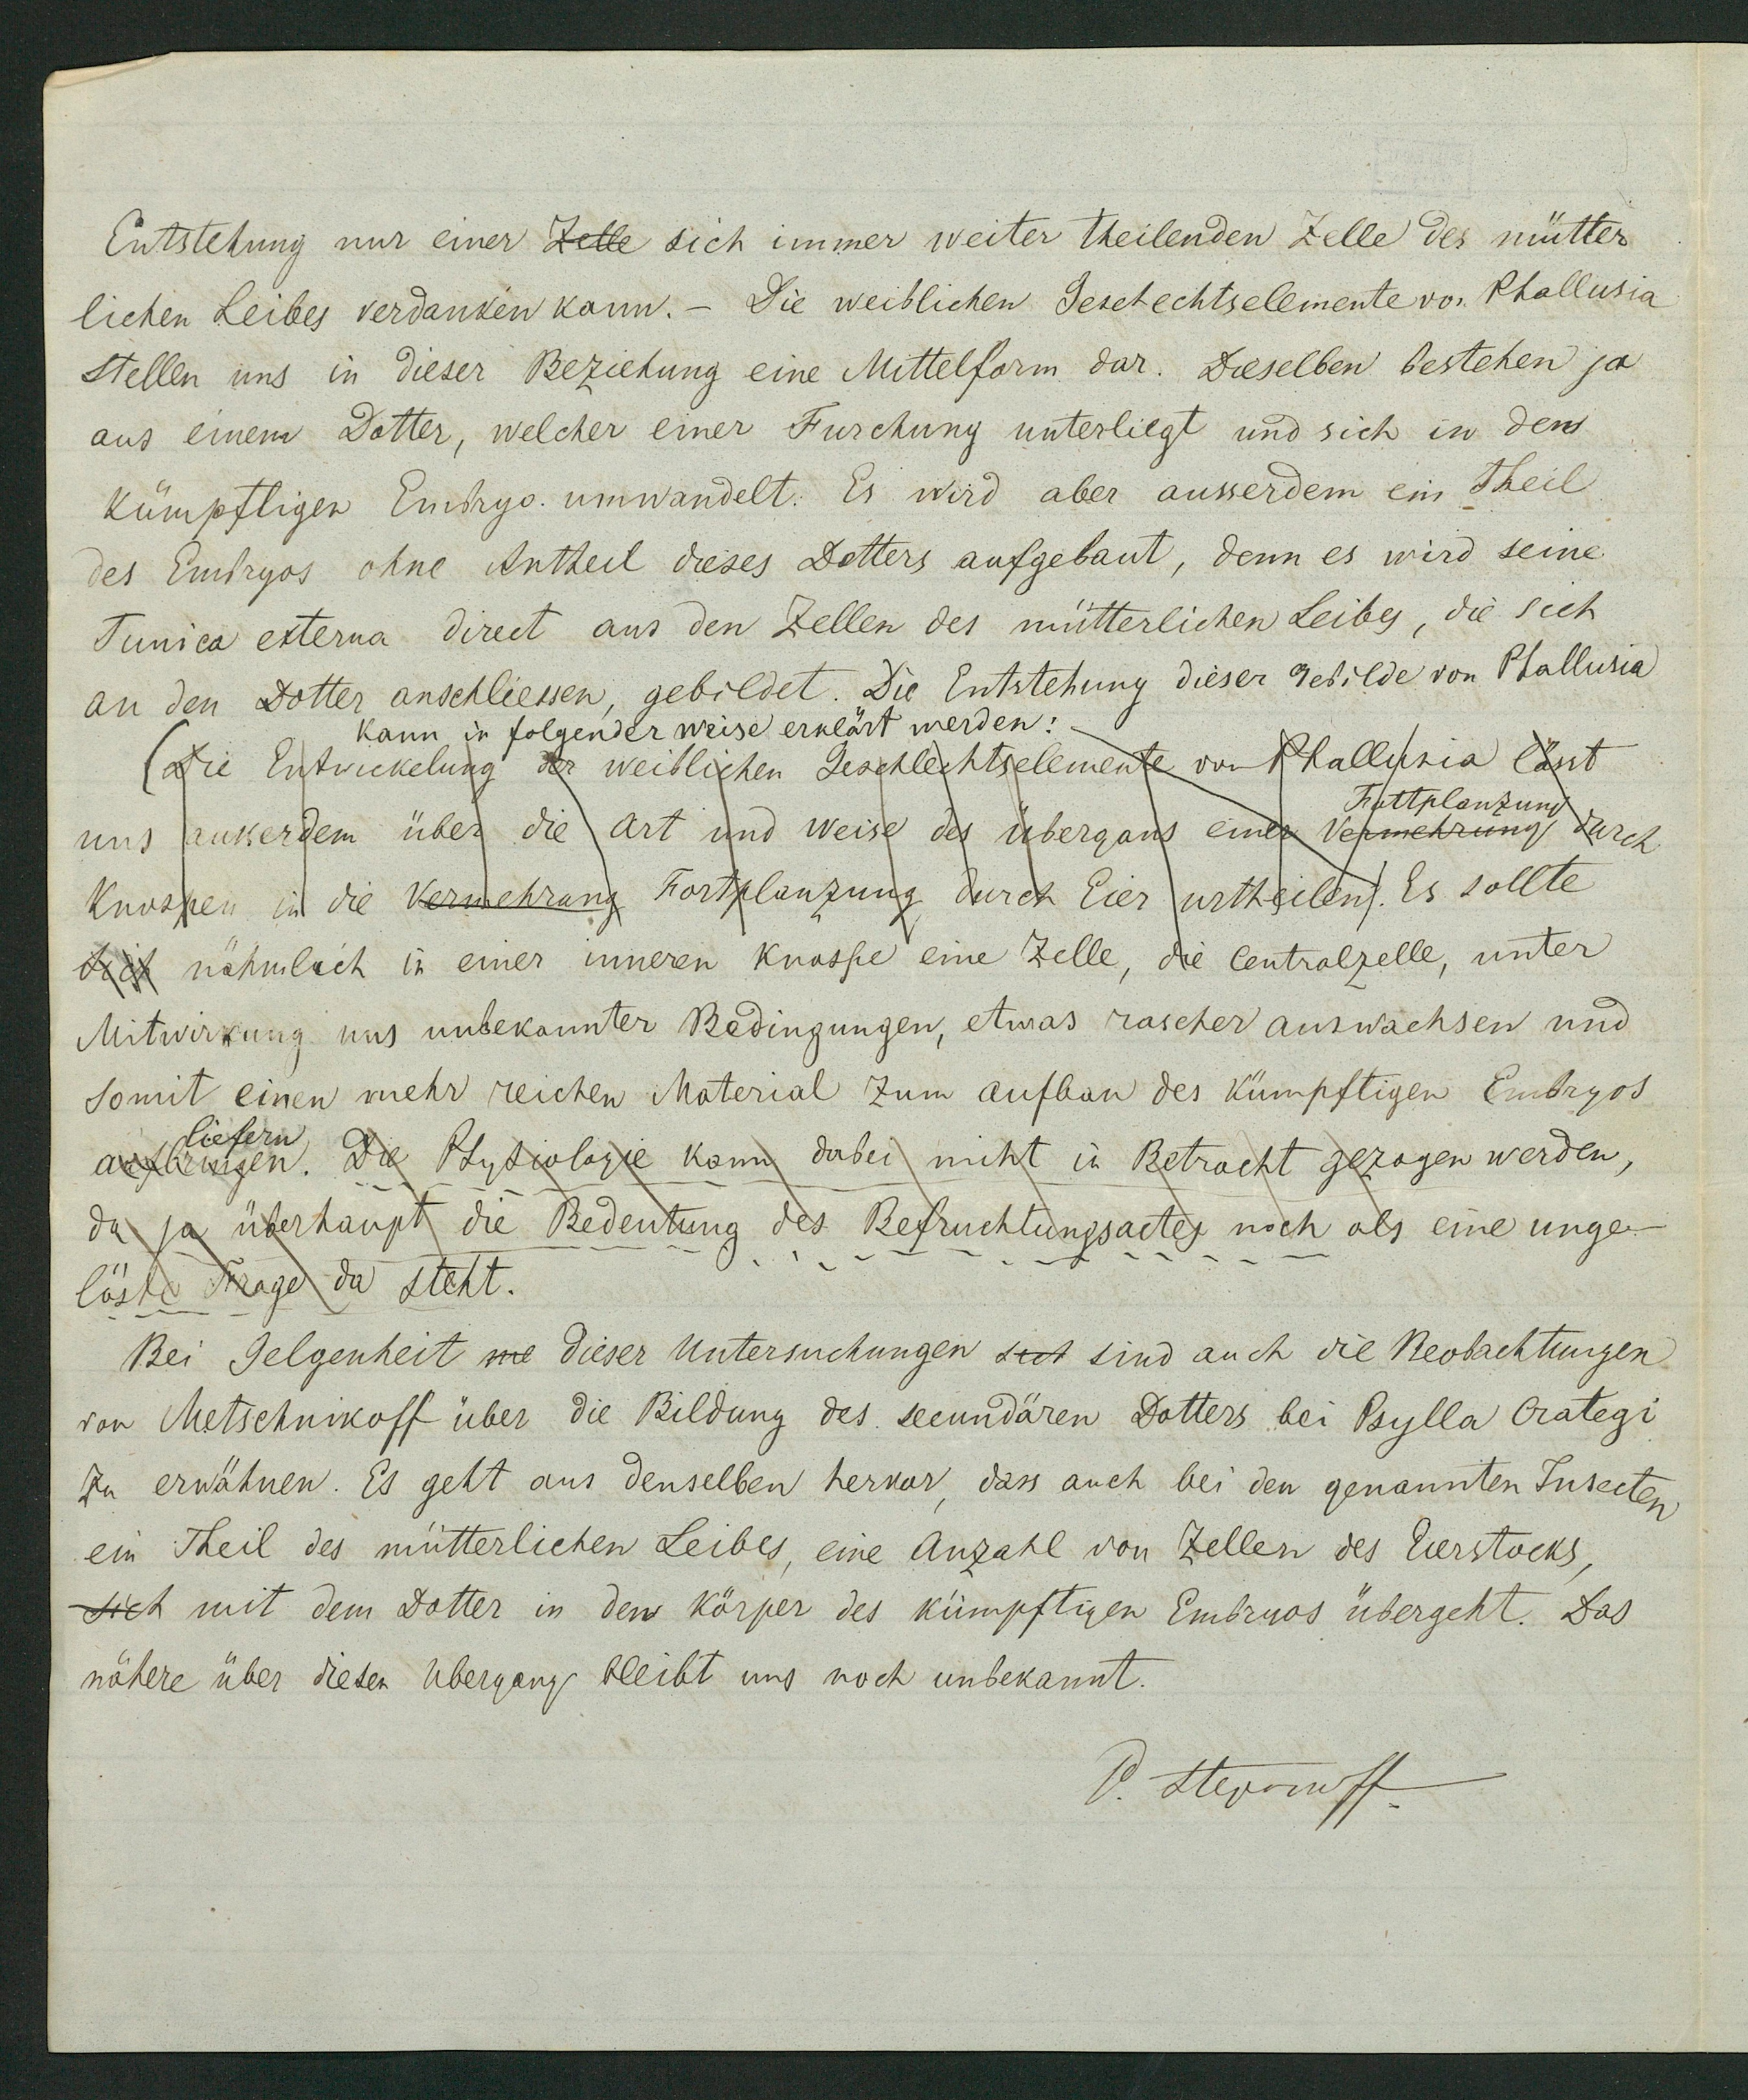 Entstehung nur einer Zelle sich immer weiter theilenden Zelle des mütter
lichen Leibes verdanken kann. – Die weiblichen Geschechtselemente von Phallusia
stellen uns in dieser Beziehung eine Mittelform dar. Dieselben bestehen ja
aus einem Dotter, welcher einer Furchung unterliegt und sich in den
kümpftigen Embryo umwandelt. Es wird aber ausserdem ein Theil
des Embryos ohne Antheil dieses Dotters aufgebaut, denn es wird seine
Tunica externa direct aus den Zellen des mütterlichen Leibes, die sich
an den Dotter anschliessen, gebildet. Die Entstehung dieser Gebilde von Phallusia
kann in folgender weise erklärt werden:
(Die Entwickelung der weiblichen Geschlechtselemente von Phallusia lässt
Fottplanzung
uns ausserdem über die Art und Weise des Übergans einer Vermehrung durch
Knospen in die Vermehrung Fortplanzung durch Eier urtheilen). Es sollte
sich nähmlich in einer inneren Knospe eine Zelle, die Centralzelle, unter
Mitwirkung uns unbekannter Bedingungen, etwas rascher auswachsen und
somit einen mehr reichen Material zum Aufbau des kümpftigen Embryos
liefern
aufbringen. Die Physiologie kann dabei nicht in Betracht gezogen werden,
da ja überhaupt die Bedeutung des Befruchtungsactes noch als eine unge-
löste Frage da steht.
Bei Gelgenheit me dieser Untersuchungen sich sind auch die Beobachtungen
von Metschnikoff über die Bildung des secundären Dotters bei Psylla Crategi
zu erwähnen. Es geht aus denselben hervor, dass auch bei den genannten Insecten
ein Theil des mütterlichen Leibes, eine Anzahl von Zellen des Eierstocks,
sich mit dem Dotter in den Körper des kümpftigen Embryos übergeht. Das
nähere über diesen Ubergang bleibt uns noch unbekannt.
P. Stepanoff